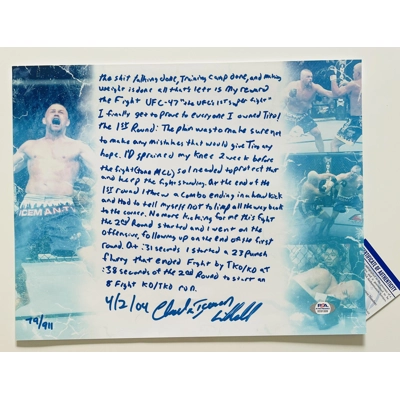 the shit talking done, Training camp done, and making
weight is done all that's left is My reward
the Fight UFC-47 "the UFC's 1st super fight"
I finally get to prove to everyone I owned Tito!
the 1st Round: The plan was to make sure not
to make any mistakes that would give Tim any
hope. I'D sprained my knee 2 week before
the fight (tore MCL) so I needed to protect that
and keep the fight standing. At the end of the
1st round I threw a combo ending in a hard kick
and Had to tell myself not to limp all the way back
to the corner. No more kicking for me this fight
the 2nd Round started and I went on the
offensive, following up on the end of the first
round. At :31 seconds I started a 23 punch
flurry that ended Fight by TKO/KO at
:38 seconds of the 2nd Round to start an
8 Fight KO/TKO run.
4/2/04 Chuck Iceman Liddell
79/911
ICEMAN
PSA